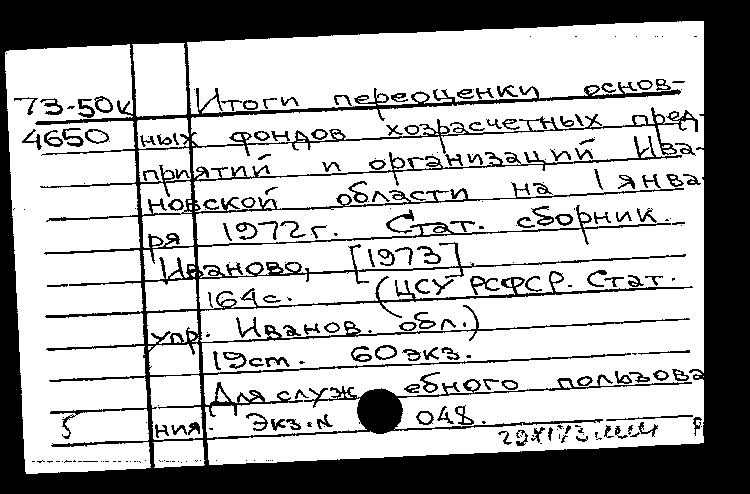 73-50к Итоги переоценки основ-
4650 ных фондов хозрасчетных пред-
приятий и организаций Ива-
новской области на 1 янва-
ря 1972 г. Стат. сборник.
Иваново, [1973].
164 с. (ЦСУ РСФСР. Стат.
упр. Иванов. обл.)
19 см. 60 экз.
Для служебного пользова
5 ния. Экз. N 048.